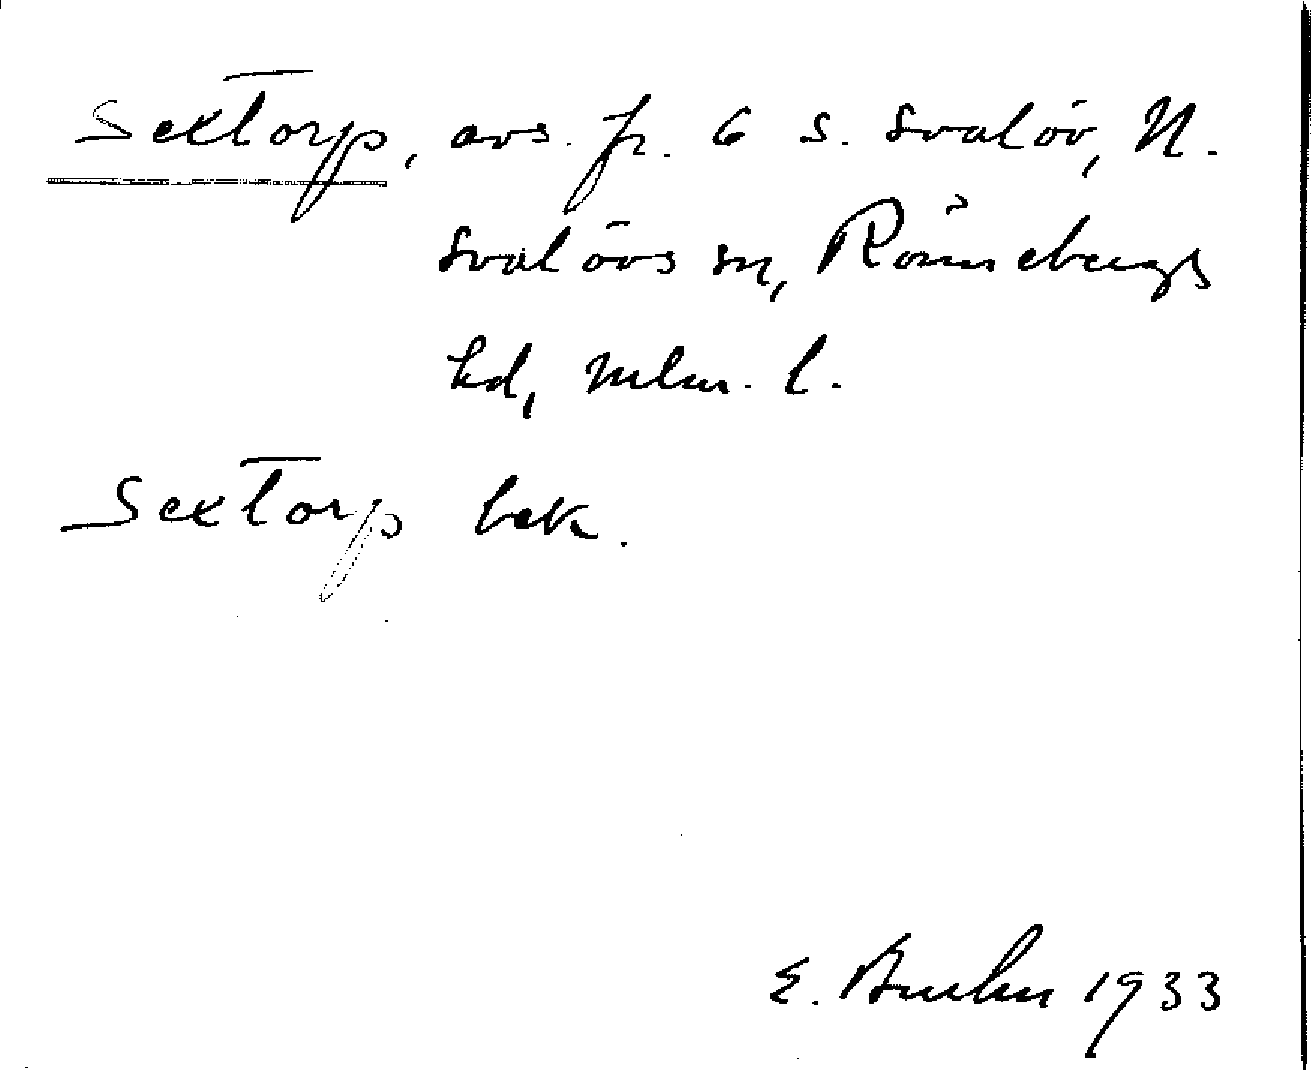 Sextorp, avs. fr. 6 s. Svalöv, N.
Svalövs sn, Rönnebergs
hd, Mlm. l.
Sextorp bek.
E. 1933